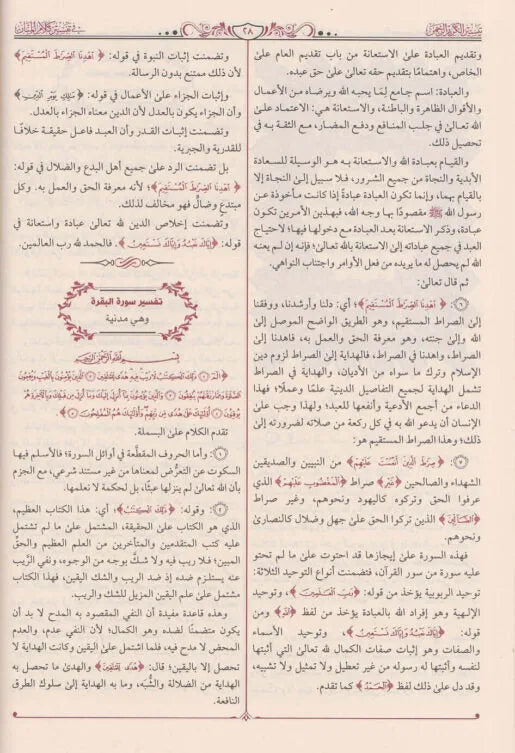 تيسير الكريم الرحمن
٢٨
في تفسير كلام المنان
وتقديم العبادة على الاستعانة من باب تقديم العام على
الخاص، واهتمامًا بتقديم حقه تعالى على حق عبده.
والعبادة: اسم جامع لِمَا يحبه الله ويرضاه من الأعمال
والأقوال الظاهرة والباطنة، والاستعانة هي: الاعتماد على
الله تعالى في جلب المنافع ودفع المضار، مع الثقة به في
تحصيل ذلك.
والقيام بعبادة الله والاستعانة به هو الوسيلة للسعادة
الأبدية والنجاة من جميع الشرور، فلا سبيل إلى النجاة إلا
بالقيام بهما، وإنما تكون العبادة عبادةً إذا كانت مأخوذة عن
رسول الله ﷺ مقصودًا بها وجه الله، فبهذين الأمرين تكون
عبادة، وذكر الاستعانة بعد العبادة مع دخولها فيها؛ لاحتياج
العبد في جميع عباداته إلى الاستعانة بالله تعالى؛ فإنه إن لم يعنه
الله لم يحصل له ما يريده من فعل الأوامر واجتناب النواهي.
ثم قال تعالى:
﴿٦﴾: ﴿اهْدِنَا الصِّرَاطَ الْمُسْتَقِيمَ﴾؛ أي: دلنا وأرشدنا، ووفقنا
إلى الصراط المستقيم، وهو الطريق الواضح الموصل إلى
الله وإلى جنته، وهو معرفة الحق والعمل به، فاهدنا إلى
الصراط، واهدنا في الصراط، فالهداية إلى الصراط لزوم دين
الإسلام وترك ما سواه من الأديان، والهداية في الصراط
تشمل الهداية لجميع التفاصيل الدينية علمًا وعملًا؛ فهذا
الدعاء من أجمع الأدعية وأنفعها للعبد؛ ولهذا وجب على
الإنسان أن يدعو الله به في كل ركعة من صلاته لضرورته إلى
ذلك؛ وهذا الصراط المستقيم هو:
﴿٧﴾: ﴿صِرَاطَ الَّذِينَ أَنْعَمْتَ عَلَيْهِمْ﴾ من النبيين والصديقين
الشهداء والصالحين ﴿غَيْرِ﴾ صراط ﴿الْمَغْضُوبِ عَلَيْهِمْ﴾ الذي
عرفوا الحق وتركوه كاليهود ونحوهم، وغير صراط
﴿الضَّالِّينَ﴾ الذين تركوا الحق على جهل وضلال كالنصارى
ونحوهم.
فهذه السورة على إيجازها قد احتوت على ما لم تحتو
عليه سورة من سور القرآن، فتضمنت أنواع التوحيد الثلاثة:
توحيد الربوبية يؤخذ من قوله: ﴿رَبِّ الْعَالَمِينَ﴾، وتوحيد
الإلهية وهو إفراد الله بالعبادة يؤخذ من لفظ ﴿اللَّهِ﴾ ومن
قوله: ﴿إِيَّاكَ نَعْبُدُ وَإِيَّاكَ نَسْتَعِينُ﴾، وتوحيد الأسماء
والصفات وهو إثبات صفات الكمال لله تعالى التي أثبتها
لنفسه وأثبتها له رسوله من غير تعطيل ولا تمثيل ولا تشبيه،
وقد دل على ذلك لفظ ﴿الْحَمْدُ﴾ كما تقدم.
وتضمنت إثبات النبوة في قوله: ﴿اهْدِنَا الصِّرَاطَ الْمُسْتَقِيمَ﴾
لأن ذلك ممتنع بدون الرسالة.
وإثبات الجزاء على الأعمال في قوله: ﴿مَالِكِ يَوْمِ الدِّينِ﴾
وأن الجزاء يكون بالعدل لأن الدين معناه الجزاء بالعدل.
وتضمنت إثبات القدر وأن العبد فاعل حقيقة خلافًا
للقدرية والجبرية.
بل تضمنت الرد على جميع أهل البدع والضلال في قوله:
﴿اهْدِنَا الصِّرَاطَ الْمُسْتَقِيمَ﴾؛ لأنه معرفة الحق والعمل به. وكل
مبتدع وضال فهو مخالف لذلك.
وتضمنت إخلاص الدين لله تعالى عبادة واستعانة في
قوله: ﴿إِيَّاكَ نَعْبُدُ وَإِيَّاكَ نَسْتَعِينُ﴾. فالحمد لله رب العالمين.
تفسير سورة البقرة
وهي مدنية
بسم الله الرحمن الرحيم
﴿الم ۝ ذَلِكَ الْكِتَابُ لَا رَيْبَ فِيهِ هُدًى لِلْمُتَّقِينَ ۝ الَّذِينَ يُؤْمِنُونَ بِالْغَيْبِ وَيُقِيمُونَ
الصَّلَاةَ وَمِمَّا رَزَقْنَاهُمْ يُنْفِقُونَ ۝ وَالَّذِينَ يُؤْمِنُونَ بِمَا أُنْزِلَ إِلَيْكَ وَمَا أُنْزِلَ مِنْ قَبْلِكَ وَبِالْآخِرَةِ هُمْ
يُوقِنُونَ ۝ أُولَئِكَ عَلَى هُدًى مِنْ رَبِّهِمْ وَأُولَئِكَ هُمُ الْمُفْلِحُونَ ۝﴾.
تقدم الكلام على البسملة.
﴿١﴾: وأما الحروف المقطَّعة في أوائل السورة؛ فالأسلم فيها
السكوت عن التعرُّض لمعناها من غير مستند شرعي، مع الجزم
بأن الله تعالى لم ينزلها عبثًا، بل لحكمة لا نعلمها.
﴿٢﴾: وقوله: ﴿ذَلِكَ الْكِتَابُ﴾؛ أي: هذا الكتاب العظيم،
الذي هو الكتاب على الحقيقة، المشتمل على ما لم تشتمل
عليه كتب المتقدمين والمتأخرين من العلم العظيم والحقِّ
المبين؛ فلا ريب فيه ولا شكَّ بوجه من الوجوه، ونفي الرَّيب
عنه يستلزم ضده إذ ضد الريب والشك اليقين، فهذا الكتاب
مشتمل على علم اليقين المزيل للشك والريب.
وهذه قاعدة مفيدة أن النفي المقصود به المدح لا بد أن
يكون متضمنًا لضده وهو الكمال؛ لأن النفي عدم، والعدم
المحض لا مدح فيه، فلما اشتمل على اليقين وكانت الهداية لا
تحصل إلا باليقين؛ قال: ﴿هُدًى لِلْمُتَّقِينَ﴾ والهدى ما تحصل به
الهداية من الضلالة والشُّبَه، وما به الهداية إلى سلوك الطرق
النافعة.